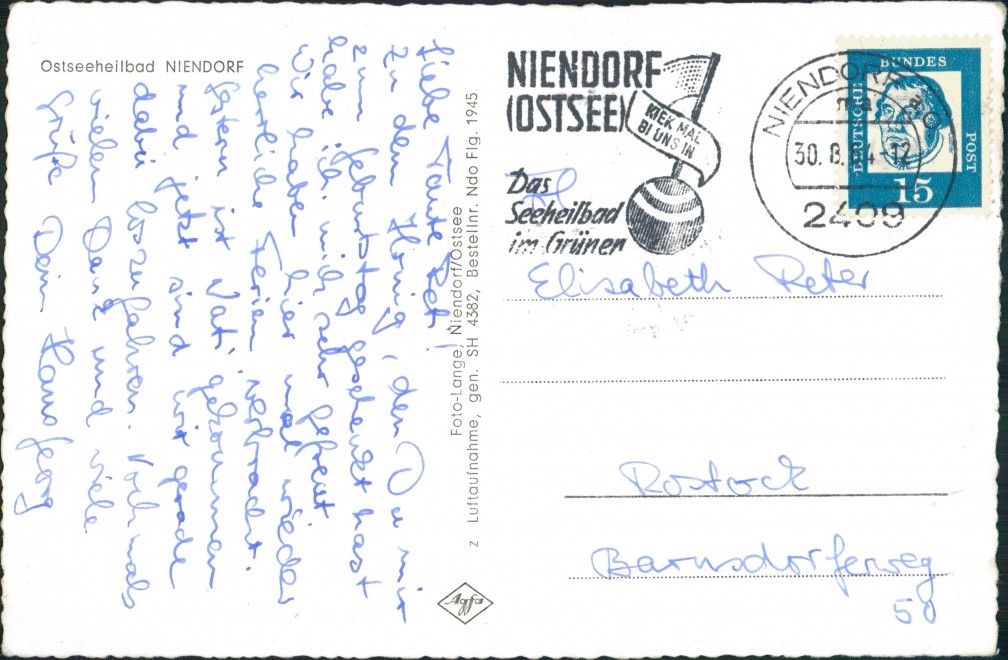 Ostseeheilbad NIENDORF
Liebe Tante Ret!
Zu dem Honig, den Du mir
zum Geburtstag geschenkt hast
habe ich mich sehr gefreut
Wir haben hier mal wieder
herrliche Ferien verbracht.
Gestern ist Vati gekommen
und jetzt sind wir gerade
dabei loszufahren. Nochmals
vielen Dank und viele
Grüße Dein Hans Georg
Foto-Lange, Niendorf/Ostsee
z Luftaufnahme, gen. SH 4382, Bestellnr. Ndo Flg. 1945
Agfa
NIENDORF
(OSTSEE)
KIEK MAL
BI UNS IN
Das
Seeheilbad
im Grünen
NIENDORF
30. 8. 64-12
2409
DEUTSCHE
BUNDES
POST
15
Frl
Elisabeth Reter
Rostock
Barnsdorferweg
50